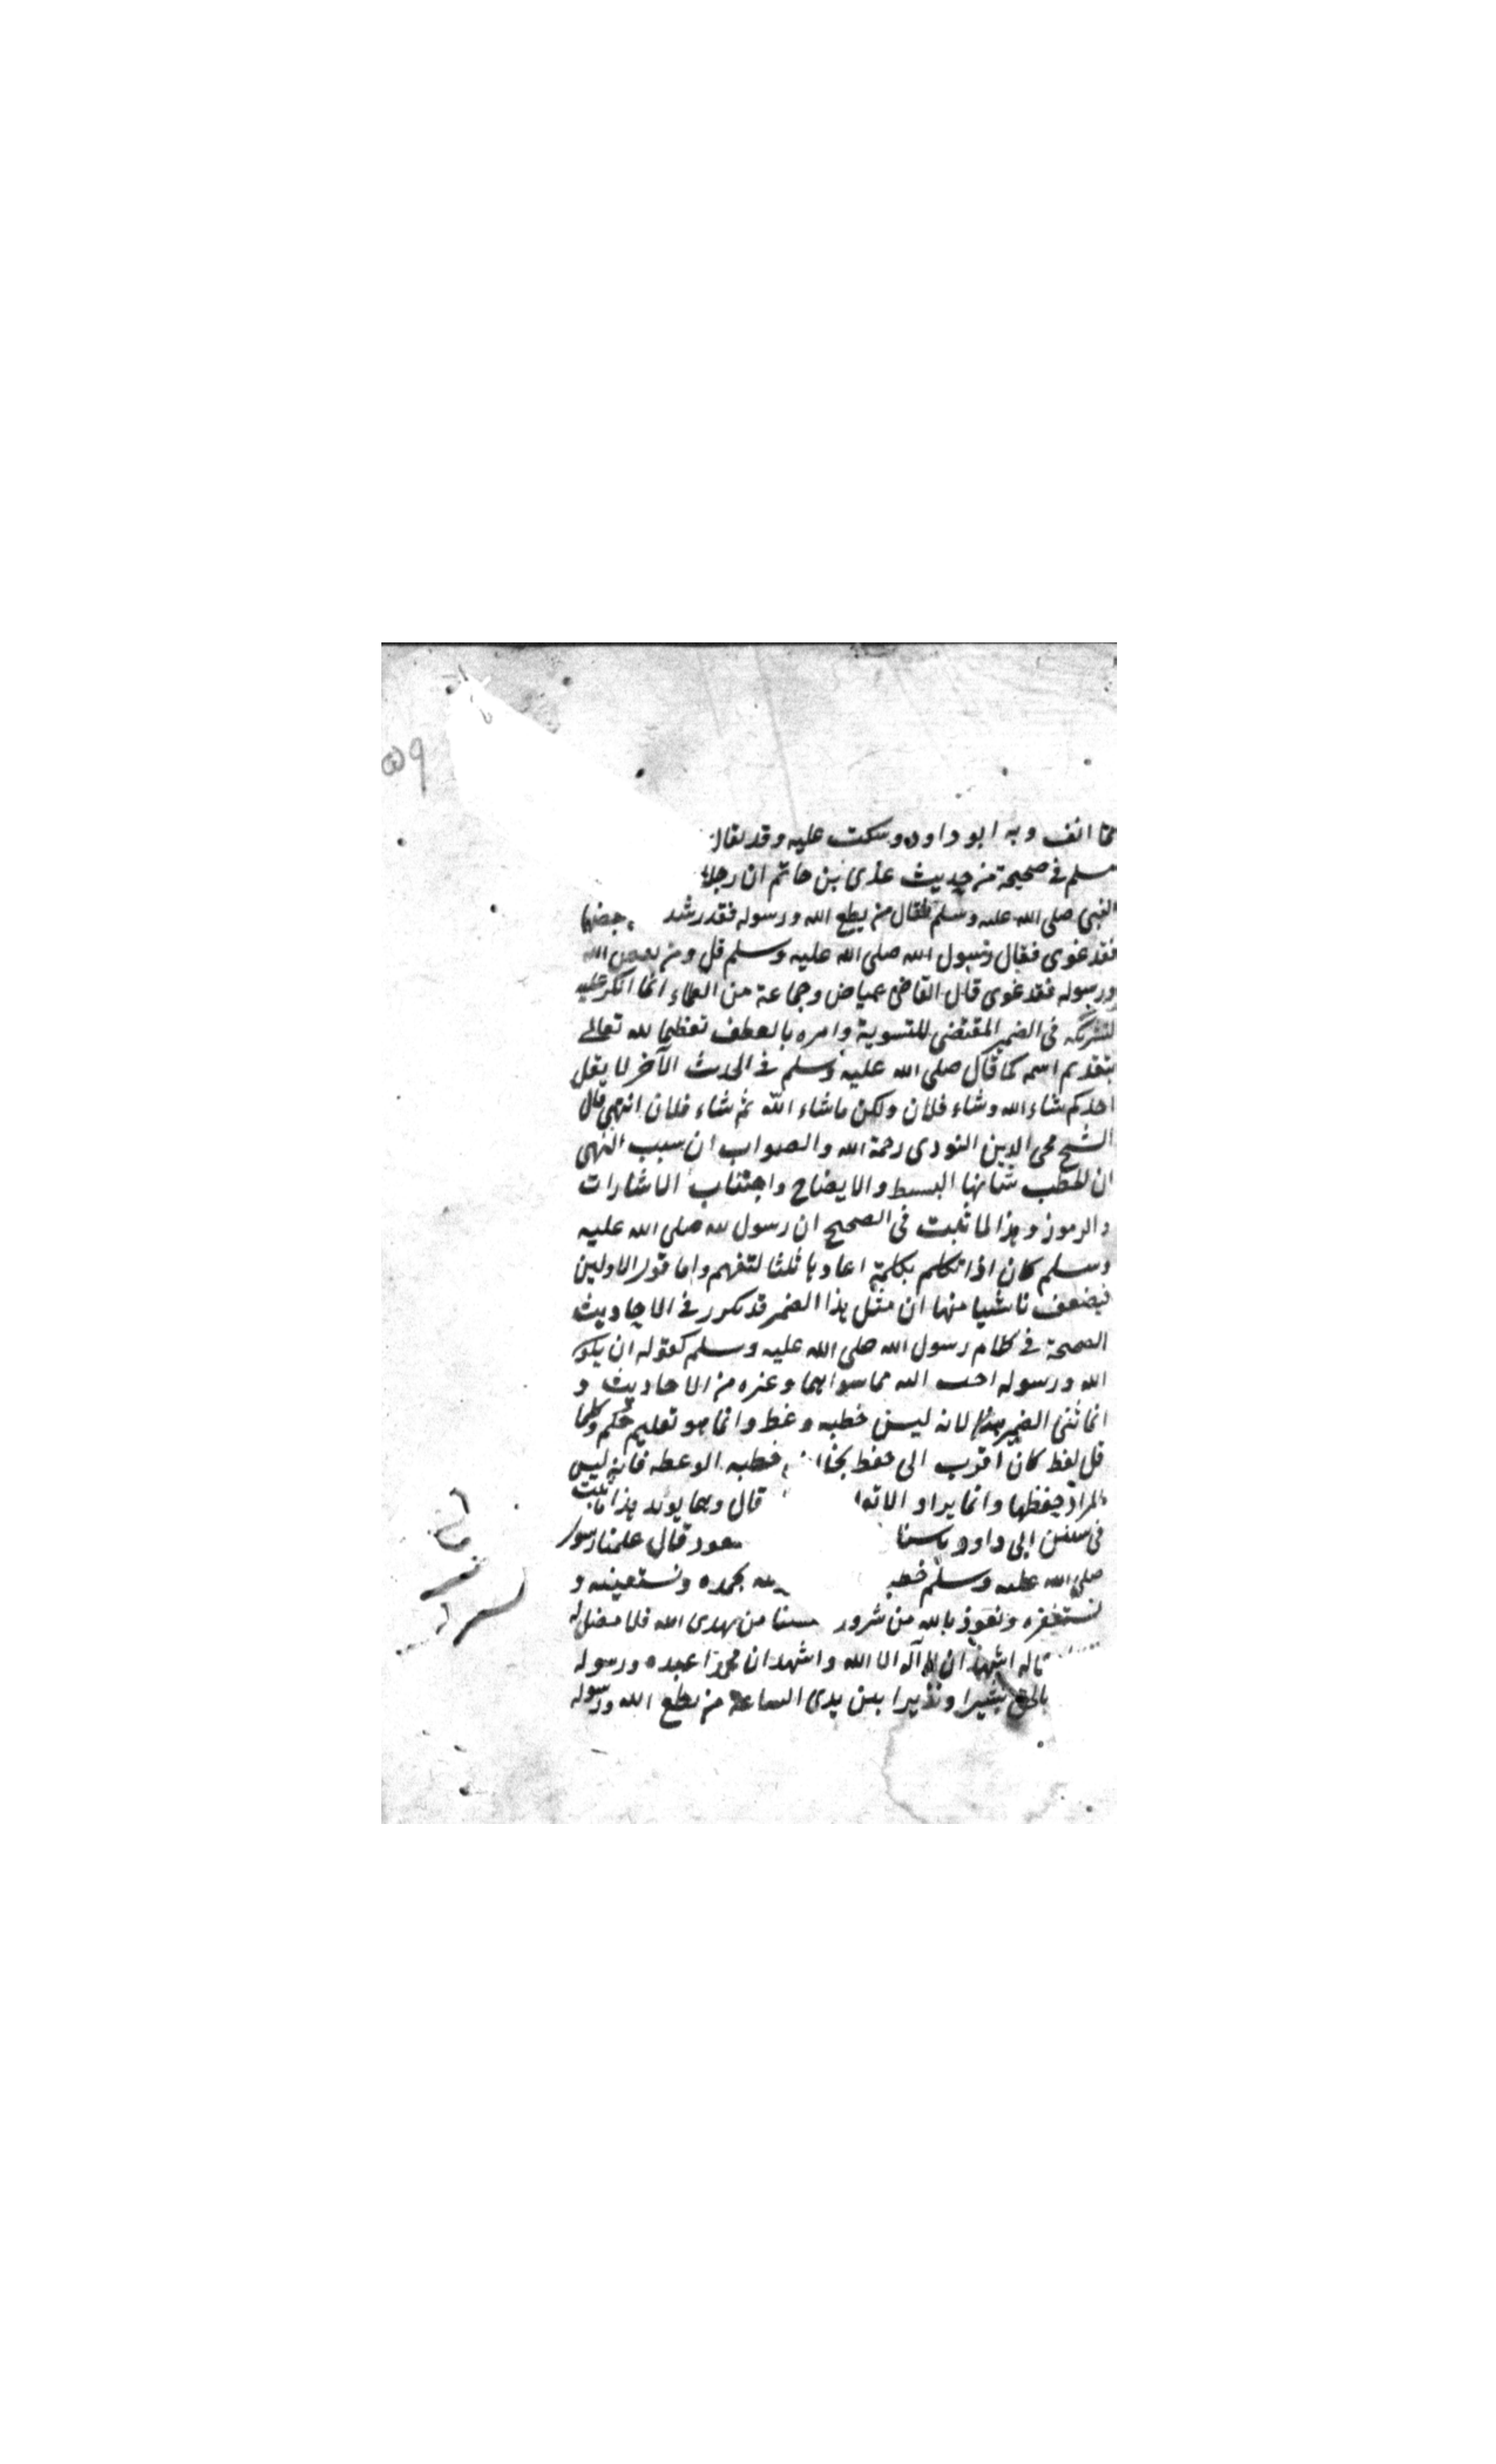 انف وبه ابو داود وسكت عليه وقد يقال
مسلم فى صحيحه من حديث عدى بن حاتم ان رجلا
النبى صلى الله عليه وسلم فقال من يطع الله ورسوله فقد رشد
فقد غوى فقال رسول الله صلى الله عليه وسلم قل ومن يعص الله
ورسوله فقد غوى قال القاضى عياض وجماعة من العلماء انما انكر عليه
لتشريكه فى الضمير المقتضى للتسوية وامره بالعطف تعظيما لله تعالى
بتقديم اسمه كما قال صلى الله عليه وسلم فى الحديث الآخر لا يقل
احدكم شاء الله وشاء فلان ولكن ما شاء الله ثم شاء فلان انتهى قال
الشيخ محى الدين النووى رحمة الله والصواب ان سبب النهى
ان الخطب شانها البسط والايضاح واجتناب الاشارات
والرموز ولهذا لما ثبت فى الصحيح ان رسول الله صلى الله عليه
وسلم كان اذا تكلم بكلمة اعادها ثلثا لتفهم واما قول الاولين
فيضعف باشيا منها ان مثل هذا الضمير قد تكرر فى الاحاديث
الصحيحة فى كلام رسول الله صلى الله عليه وسلم كقوله ان يكون
الله ورسوله احب اليه مما سواهما وغيره من الاحاديث و
انما ثنى الضمير هذا لانه ليس خطبه وعظ وانما هو تعليم حكم وكلما
قل لفظ كان اقرب الى حفظ خطبه الوعظ فانه ليس
المراد حفظها وانما يراد الاتعا قال ومما يؤيد هذا ما ثبت
فى سنن ابى داود باسنا سعود قال علمنا رسول
صلى الله عليه وسلم خطبـ لله بحمده ونستعينه و
نستغفره ونعوذ بالله من شرور سنا من يهدى الله فلا مضل له
له اشهد ان لا اله الا الله واشهد ان محمدا عبده ورسوله
بالحق بشيرا ونذيرا بين يدى الساعة من يطع الله ورسوله